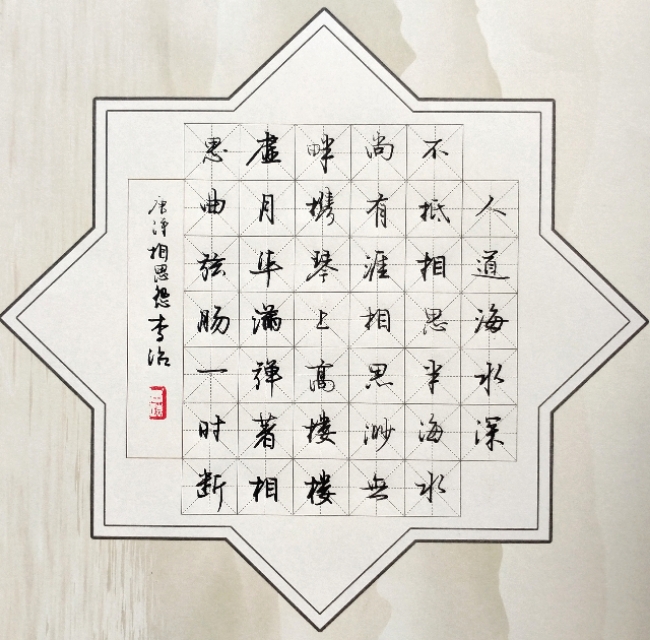 人道海水深
不抵相思半海水
尚有涯相思渺無
畔携琴上高楼楼
虚月华满弹著相
思曲弦肠一时断
唐诗相思怨李冶